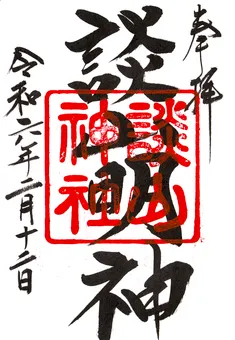 奉拝
談山明神
談山神社
令和六年二月十二日